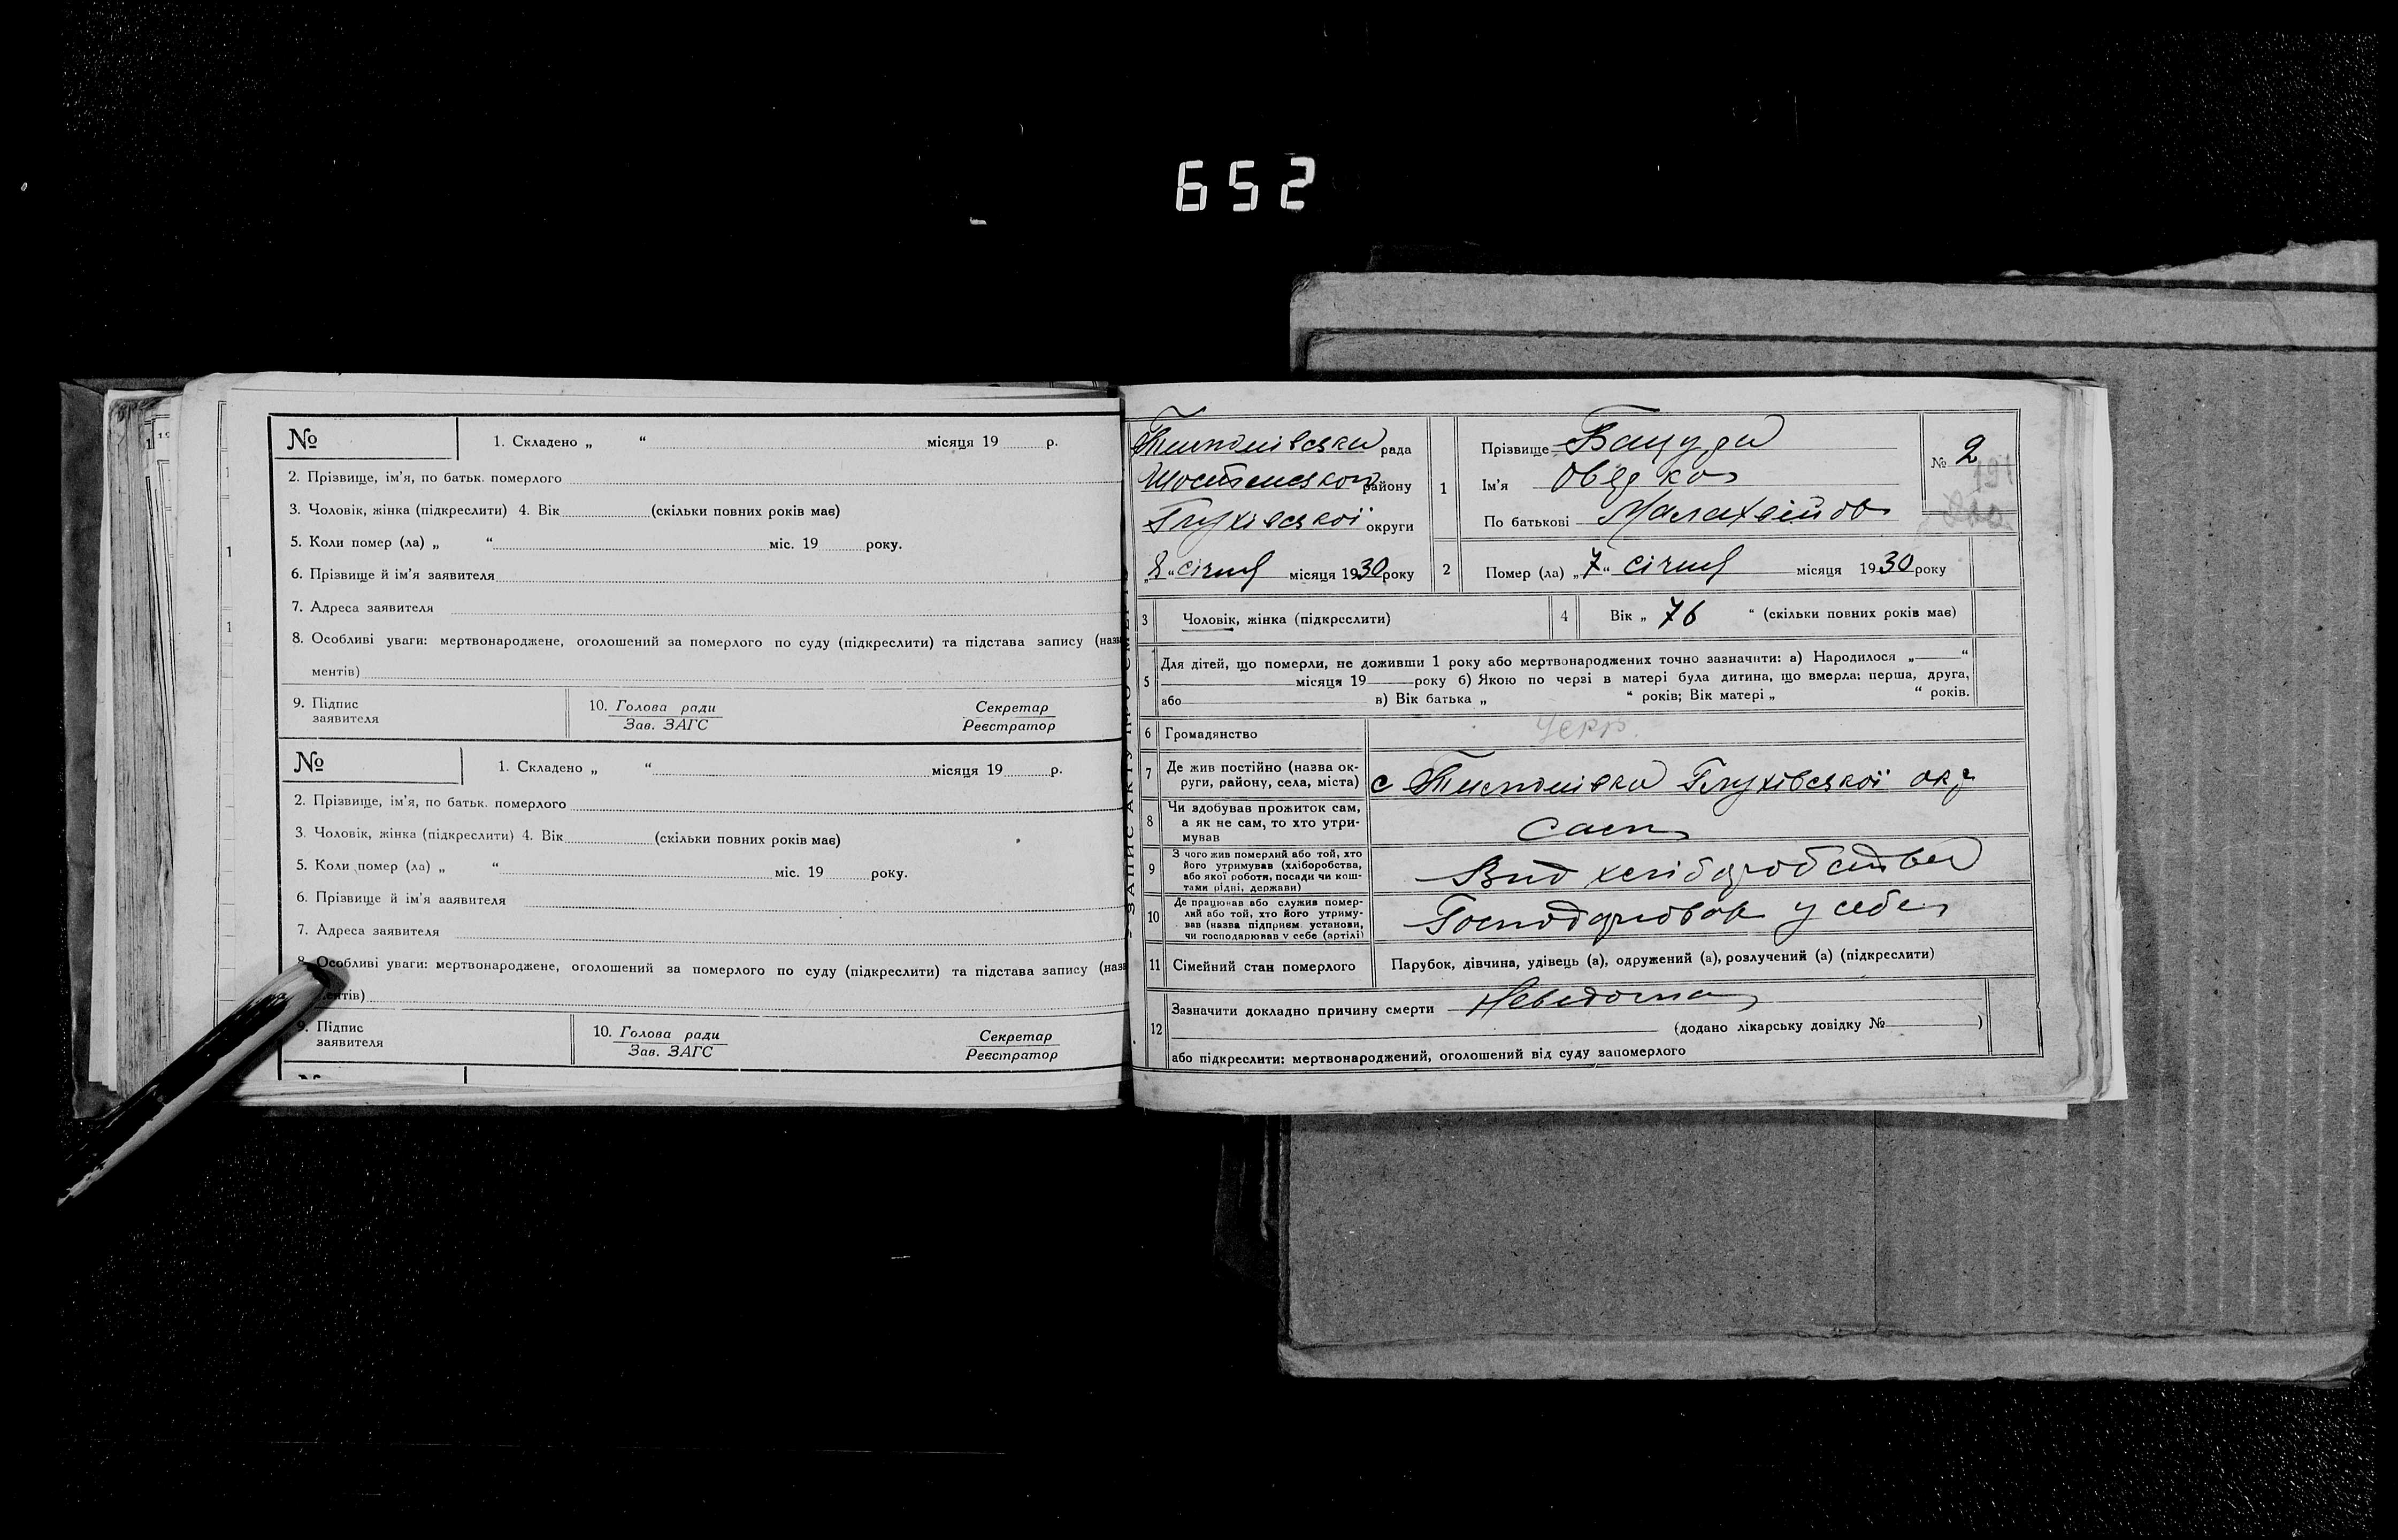 652
№ 1. Складено „ “ місяця 19 р.
2. Прізвище, ім’я, по батьк. померлого
3. Чоловік, жінка (підкреслити) 4. Вік (скільки повних років має)
5. Коли помер (ла) „ “ міс. 19 року.
6. Прізвище й ім’я заявителя
7. Адреса заявителя
8. Особливі уваги: мертвонароджене, оголошений за померлого по суду (підкреслити) та підстава запису (назв
ментів)
9. Підпис
заявителя
10. Голова ради
Зав. ЗАГС
Секретар
Реєстратор
№ 1. Складено „ “ місяця 19 р.
2. Прізвище, ім’я, по батьк. померлого
3. Чоловік, жінка (підкреслити) 4. Вік (скільки повних років має)
5. Коли помер (ла) „ “ міс. 19 року.
6. Прізвище й ім’я ааявителя
7. Адреса заявителя
8. Особливі уваги: мертвонароджене, оголошений за померлого по суду (підкреслити) та підстава запису (назв
ментів)
9. Підпис
заявителя
10. Голова ради
Зав. ЗАГС
Секретар
Реєстратор
рада
району
Глухівської округи
„8“ січня місяця 1930 року
1 Прізвище
Ім’я Овдко
По батькові Малахвійов
№ 2
2 Помер (ла) „7“ січня місяця 1930 року
3 Чоловік, жінка (підкреслити)
4 Вік „ 76 “ (скільки повних років має)
5 Для дітей, що померли, не доживши 1 року або мертвонароджених точно зазначити: а) Народилося „ “
місяця 19 року б) Якою по черзі в матері була дитина, що вмерла: перша, друга,
або в) Вік батька „ “ років; Вік матері „ “ років.
6 Громадянство Укр.
7 Де жив постійно (назва ок-
руги, району, села, міста) с Глухівської окр
8 Чи здобував прожиток сам,
а як не сам, то хто утри-
мував
Сам
9 З чого жив померлий або той, хто
його утримував (хліборобства,
або якої роботи, посади чи кош-
тами рідні, держави)
Від хліборобства
10 Де працював або служив помер-
лий або той, хто його утриму-
вав (назва підприєм. установи,
чи господарював у себе (артілі)
Господарював у себе
11 Сімейний стан померлого Парубок, дівчина, удівець (а), одружений (а), розлучений (а) (підкреслити)
12 Зазначити докладно причину смерти Невідома
(додано лікарську довідку № )
або підкреслити: мертвонароджений, оголошений від суду запомерлого